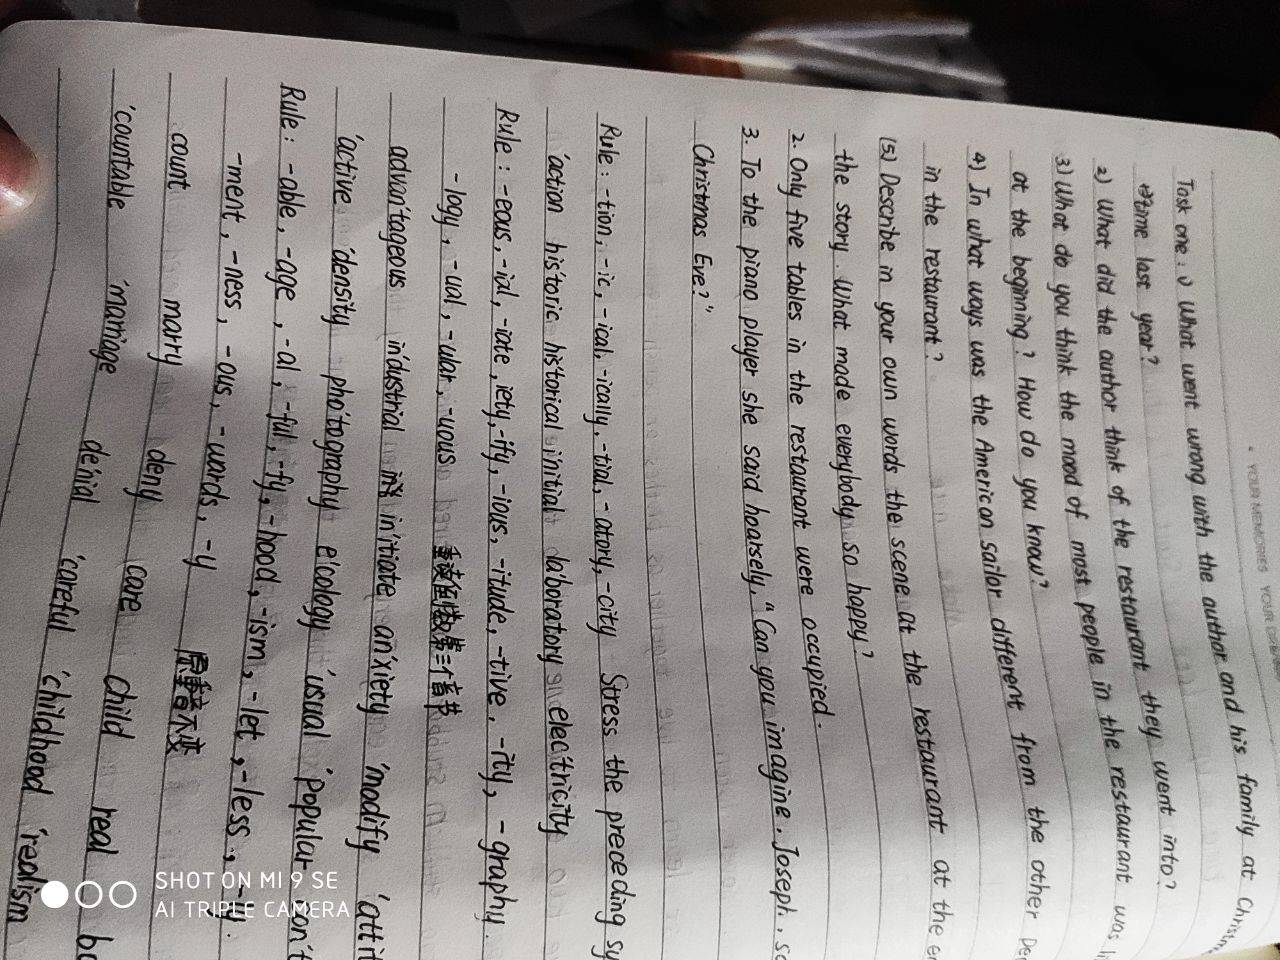 YOUR MEMORIES YOUR
Task one: 1) What went wrong with the author and his family at
time last year?
2) What did the author think of the restaurant they went into?
3) What do you think the mood of most people in the restaurant was
at the beginning? How do you know?
4) In what ways was the American sailor different from the other
in the restaurant?
(5) Describe in your own words the scene at the restaurant at the
the story. What made everybody so happy?
2. Only five tables in the restaurant were occupied.
3. To the piano player she said hoarsely, "Can you imagine, Joseph,
Christmas Eve?"
Rule: -tion, -ic, -ical, -ically, -tial, -atory, -city Stress the preceding
'action his'toric his'torical i'nitial la'boratory elec'tricity
Rule: -eous, -ial, -iate, iety, -ify, -ious, -itude, -tive, -ity, -graphy.
-logy, -ual, -ular, -uous 重读倒数第三个音节
advan'tageous in'dustrial in'itiate an'xiety 'modify
'active 'density pho'tography e'cology 'usual 'popular
Rule: -able, -age, -al, -ful, -fy, -hood, -ism, -let, -less, -ly.
-ment, -ness, -ous, -wards, -y 原重音不变
count marry deny care child real
'countable 'marriage de'nial 'careful 'childhood 'realism
SHOT ON MI 9 SE
AI TRIPLE CAMERA